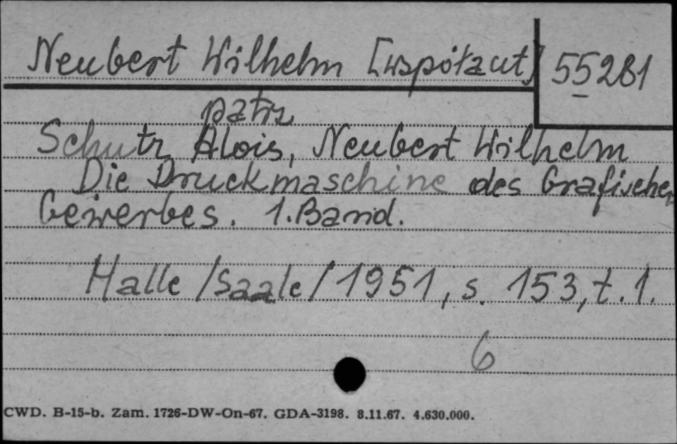 Neubert Wilhelm [współaut] 55281
patrz
Schutz Alois, Neubert Wilhelm
Die Druckmaschine des Grafischen
Gewerbes. 1. Band.
Halle /Saale/ 1951, s. 153, t. 1.
6
CWD. B-15-b. Zam. 1726-DW-On-67. GDA-3198. 8.11.67. 4.630.000.